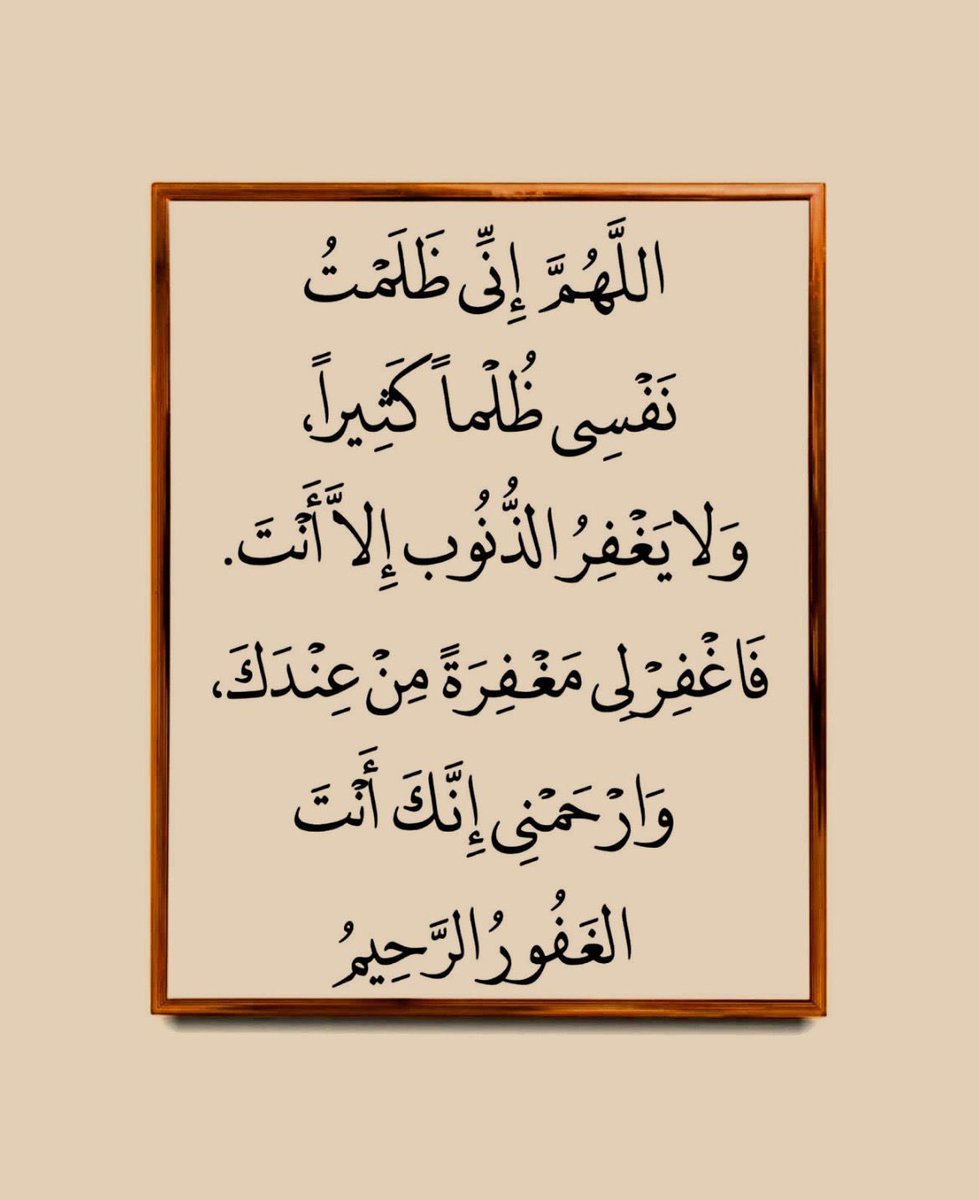 اللَّهُمَّ إِنِّى ظَلَمْتُ
نَفْسِى ظُلْماً كَثِيراً،
وَلا يَغْفِرُ الذُّنُوب إِلاَّ أَنْتَ.
فَاغْفِرْ لِى مَغْفِرَةً مِنْ عِنْدَكَ،
وَارْحَمْنِى إِنَّكَ أَنْتَ
الغَفُورُ الرَّحِيمُ